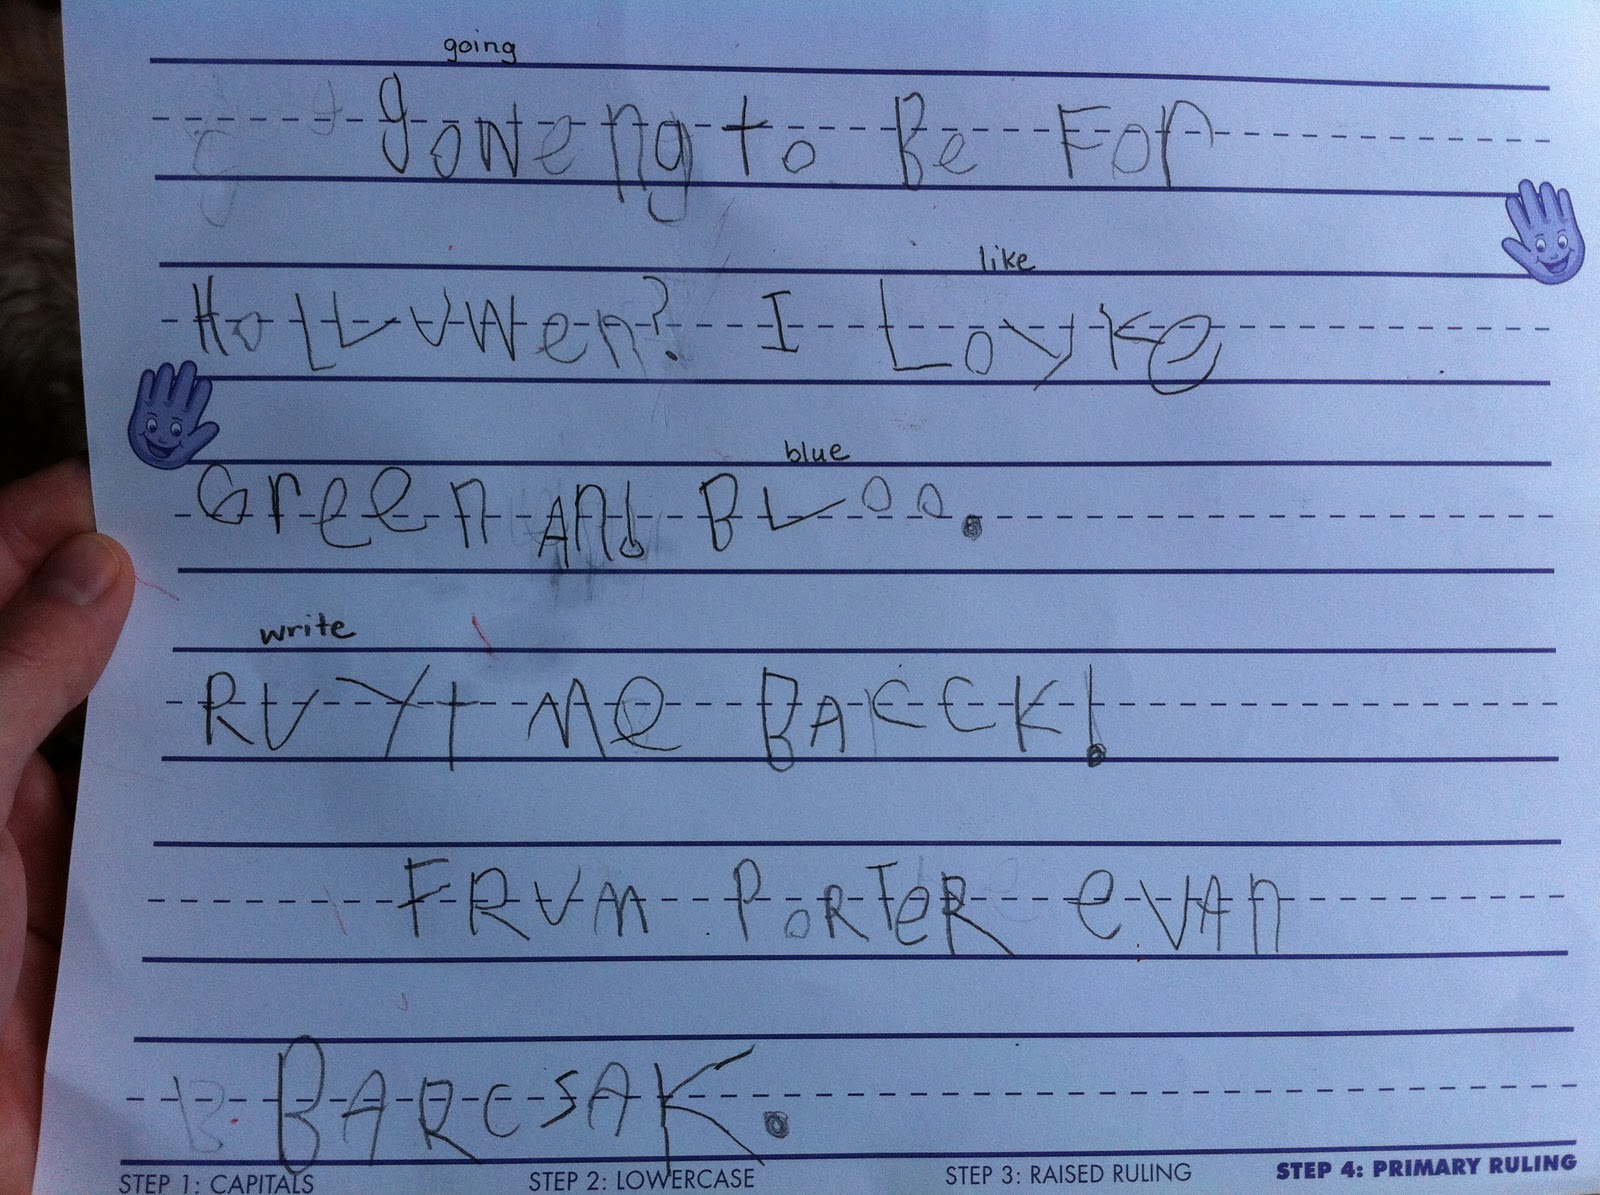 going
goweng to Be For
like
HoLLUWen? I Loyke
blue
Green And BLoo.
write
RUYt Me BACCK!
FRUM PoRTeR eVAn
BARCSAK.
STEP 1: CAPITALS STEP 2: LOWERCASE STEP 3: RAISED RULING STEP 4: PRIMARY RULING